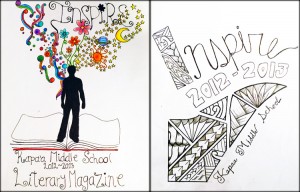 Inspire
Kapa'a Middle School
2012-2013
Literary Magazine
Inspire
2012-2013
Kapaa Middle School